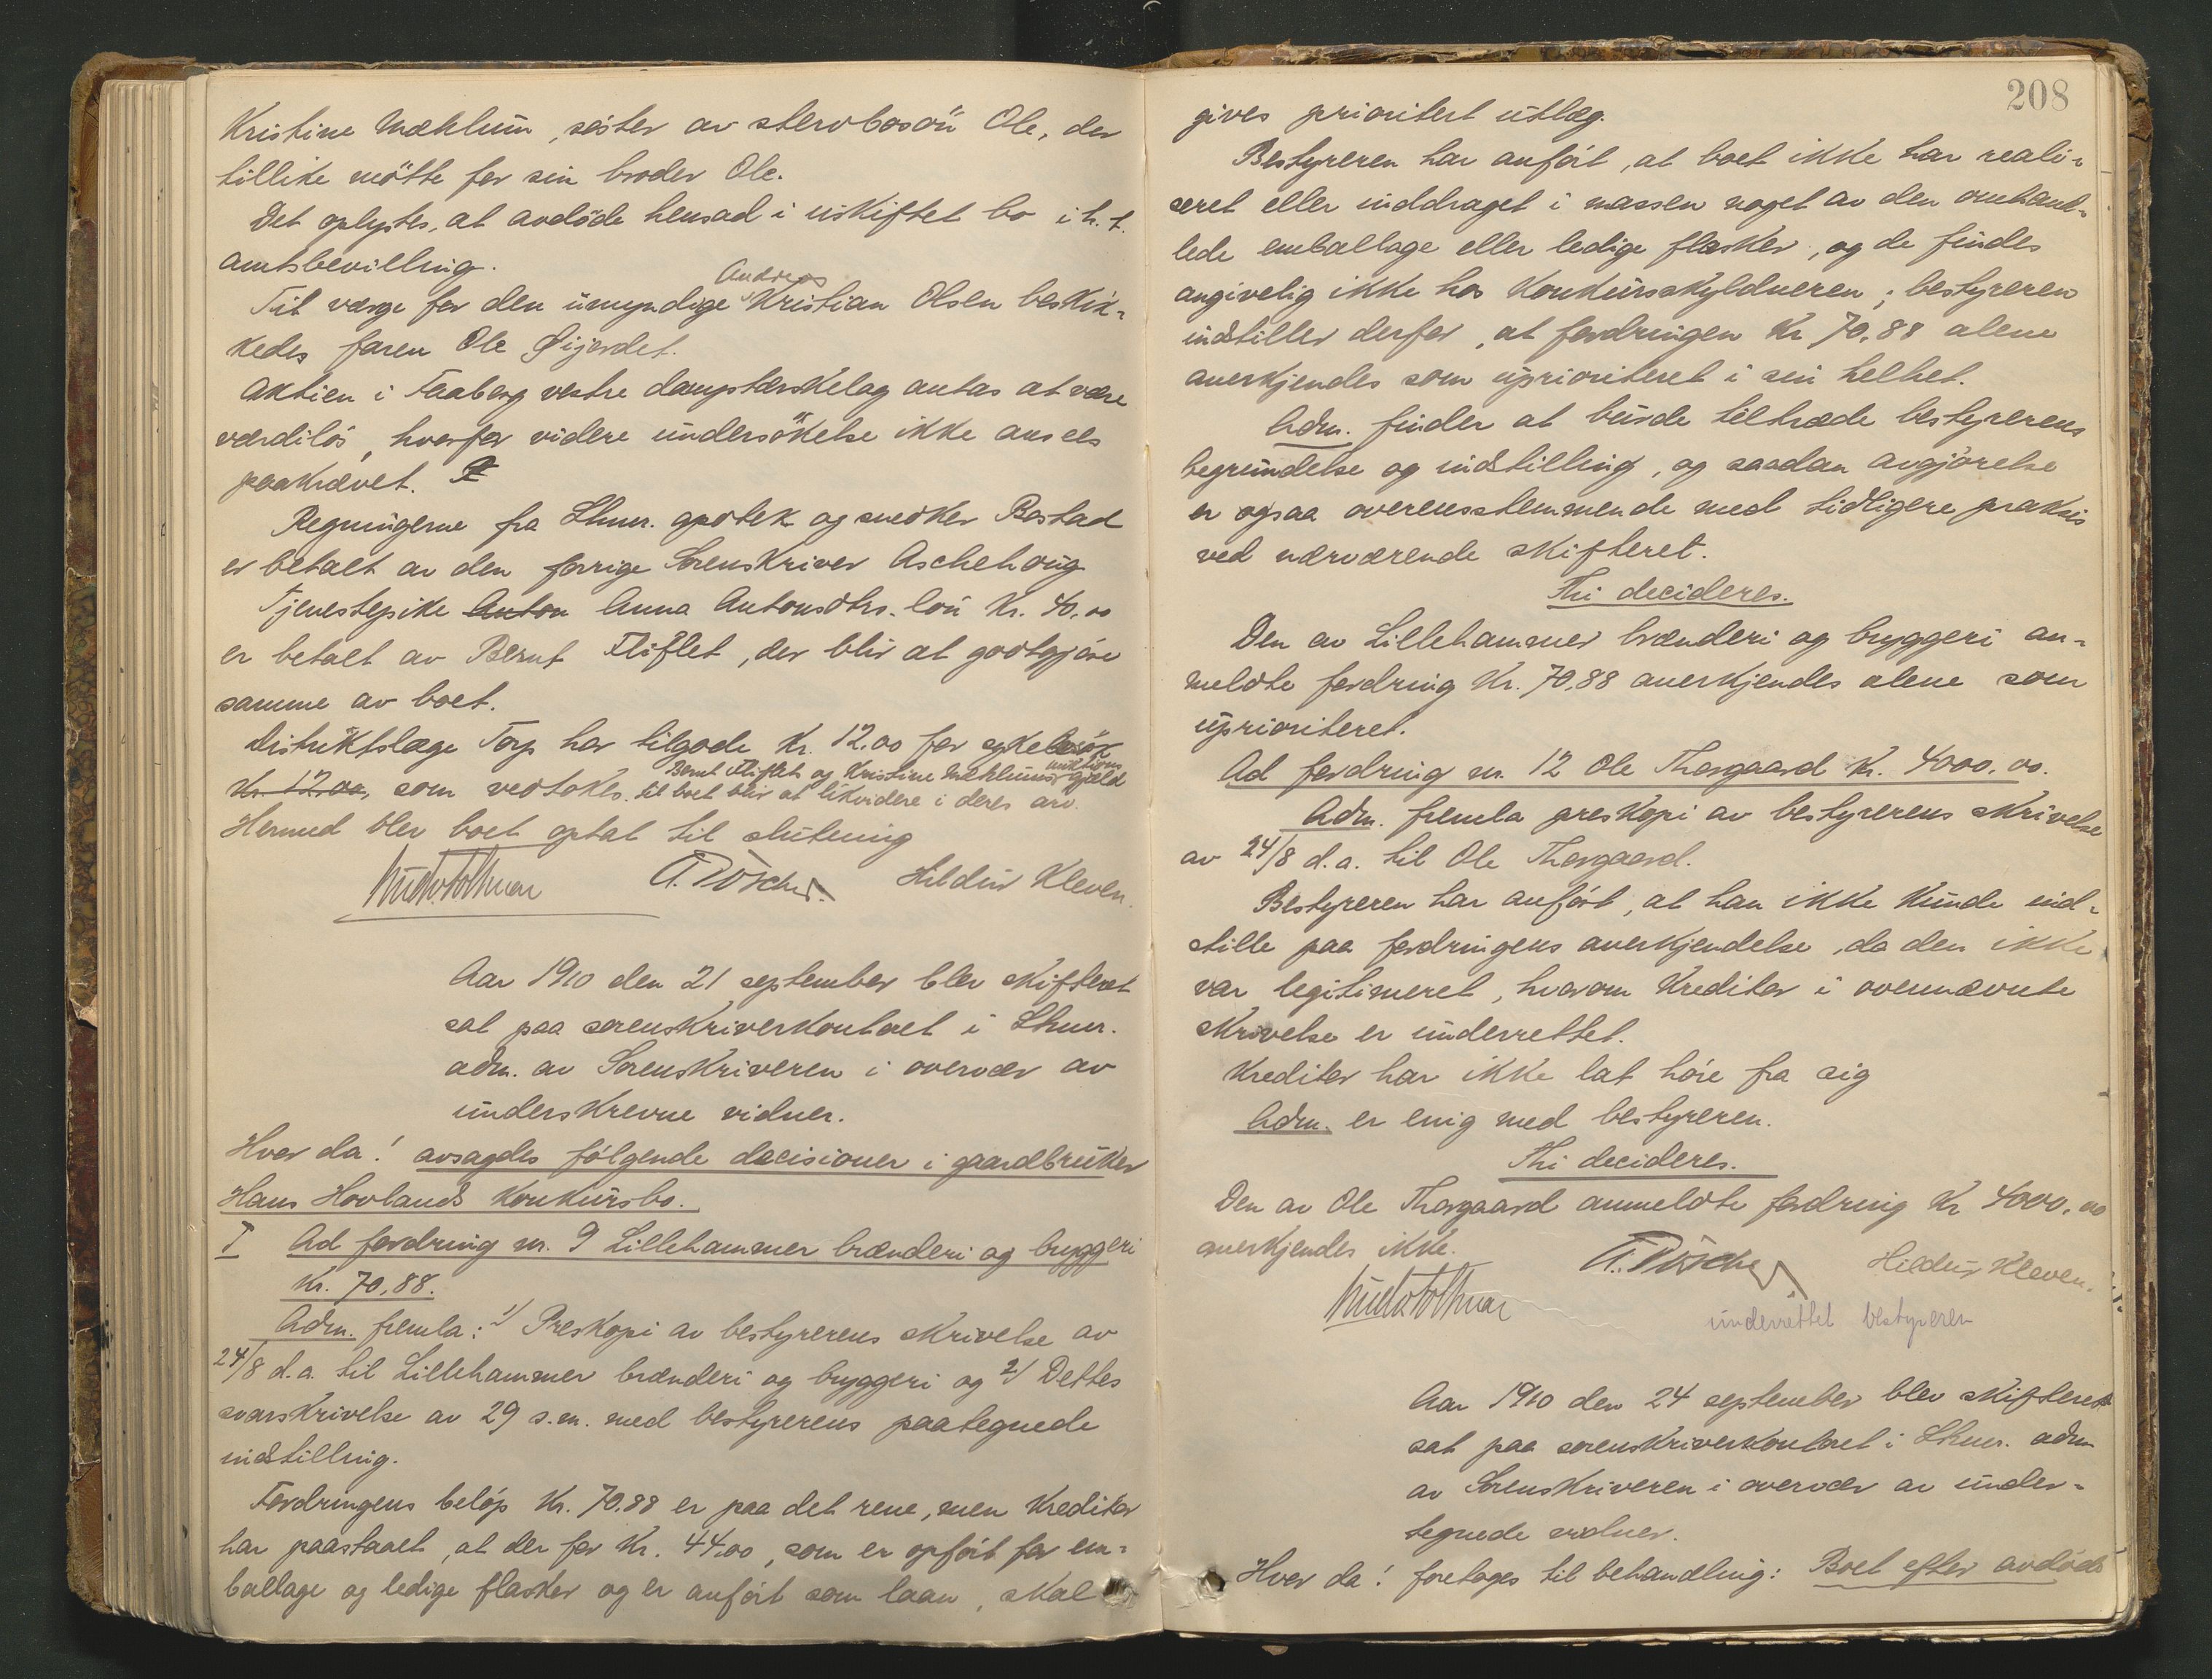 Kristine Mæhlum, søster av stervboson Ole, der
tillike møtte for sin broder Ole.
Det oplystes, at avdøde hensad i uskiftet bo i h. t.
amtsbevilling.
Andreas
Til værge for den umyndige Kristian Olsen beskik-
kedes faren Ole Øijordet.
Aktien i Faaberg vestre damptærskelag antas at være
værdiløs, hvorfor videre undersøkelse ikke ansees
paakrævet.
Regningerne fra Lhmr. apotek og snedker Bastad
er betalt av den forrige Sorenskriver Aschehoug
Tjenestepike Anton Anna Antonsdtrs. løn Kr. 40.00
er betalt av Bernt Fliflet, der blir at godtgjøre
samme av boet.
Distriktslæge Torp har tilgode Kr. 12.00 for sykebesøk
Bernt Fliflet og Kristine Mæhlums auktionsgjæld
Kr. 12.00, som vedtokes. til boet blir at likvidere i deres arv.
Hermed blev boet optat til slutning
A. Düscher Hildur Kleven.
Aar 1910 den 21 september blev skifteret
sat paa sorenskriverkontoret i Lhmr.
adm. av Sorenskriveren i overvær av
underskrevne vidner.
Hvor da! avsagdes følgende decisioner i gaardbruker
Hans Hovlands konkursbo.
I Ad fordring nr. 9 Lillehammer brænderi og bryggeri
Kr. 70,88.
Adm. fremla: 1/ Preskopi av bestyrerens skrivelse av
24/8 d.a. til Lillehammer brænderi og bryggeri og 2/ Dettes
svarskrivelse av 29 s.m. med bestyrerens paategnede
indstilling.
Fordringens beløp Kr. 70.88 er paa det rene, men kreditor
har paastaaet, at der for Kr. 44.00, som er opført for em-
ballage og ledige flasker og er anført som laan, skal
208
gives prioritert utlæg.
Bestyreren har anført, at boet ikke har reali-
seret eller inddraget i massen noget av den omhand-
lede emballage eller ledige flasker, og de findes
angivelig ikke hos konkursskyldneren; bestyreren
indstiller derfor, at fordringen Kr 70,88 alene
anerkjendes som uprioriteret i sin helhet.
Adm. finder at burde tiltræde bestyrerens
begrundelse og indstilling, og saadan avgjørelse
er ogsaa overensstemmende med tidligere praksis
ved nærværende skifteret.
Thi decideres.
Den av Lillehammer brænderi og bryggeri an-
meldte fordring Kr. 70,88 anerkjendes alene som
uprioriteret.
Ad fordring nr. 12 Ole Thorgaard Kr. 4000.00.
Adm. fremla preskopi av bestyrerens skrivelse
av 24/8 d.a. til Ole Thorgaard.
Bestyreren har anført, at han ikke kunde ind-
stille paa fordringens anerkjendelse, da den ikke
var legitimeret, hvorom kreditor i ovennævnte
skrivelse er underrettet.
Kreditor har ikke lat høre fra sig
Adm. er enig med bestyreren.
Thi decideres.
Den av Ole Thorgaard anmeldte fordring Kr 4000.00
anerkjendes ikke.
A. Düscher Hildur Kleven.
underrettet bestyreren
Aar 1910 den 24 september blev skifteret
sat paa sorenskriverkontoret i Lhmr. adm
av Sorenskriveren i overvær av under-
tegnede vidner.
Hvor da! foretoges til behandling: Boet efter avdøde